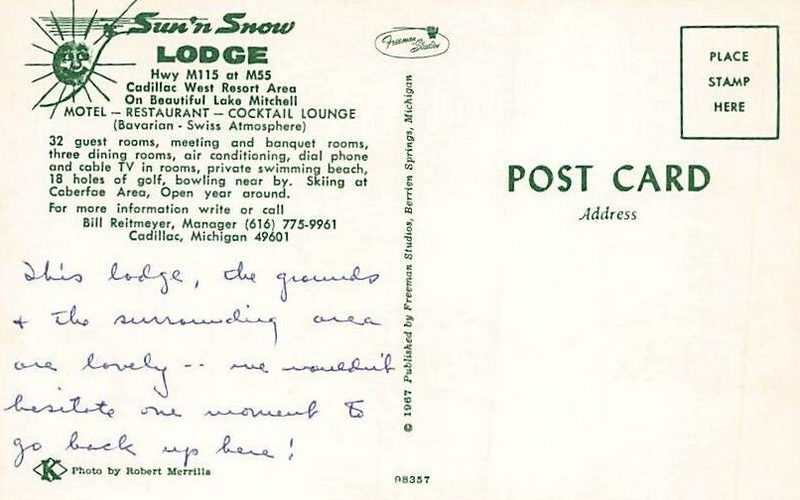 Sun'n Snow
LODGE
Hwy M115 at M55
Cadillac West Resort Area
On Beautiful Lake Mitchell
MOTEL — RESTAURANT — COCKTAIL LOUNGE
(Bavarian - Swiss Atmosphere)
32 guest rooms, meeting and banquet rooms,
three dining rooms, air conditioning, dial phone
and cable TV in rooms, private swimming beach,
18 holes of golf, bowling near by. Skiing at
Caberfae Area, Open year around.
For more information write or call
Bill Reitmeyer, Manager (616) 775-9961
Cadillac, Michigan 49601
This lodge, the grounds
+ the surrounding area
are lovely -- we wouldn't
hesitate one moment to
go back up here!
K
Photo by Robert Merrills
Freeman Studios
© 1967 Published by Freeman Studios, Berrien Springs, Michigan
PLACE
STAMP
HERE
POST CARD
Address
A8357